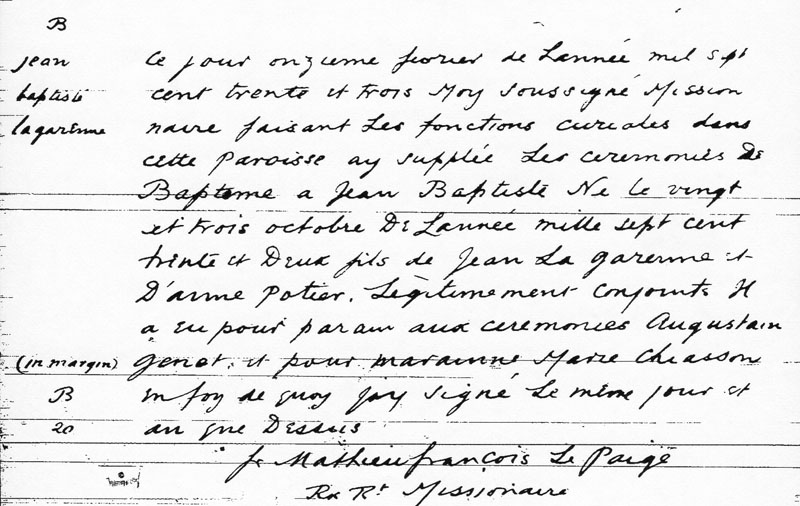 B
jean
baptiste
lagarenne
Ce jour onzieme fevrier de Lannée mil sept
cent trente et trois Moy soussigné Mission
naire faisant Les fonctions curiales dans
cette paroisse ay supplée Les ceremonies De
Bapteme a Jean Baptiste Ne le vingt
et trois octobre De Lannée mille sept cent
trente et Deux fils de Jean La garenne et
D'anne Potier. Légitimement Conjoints Il
a eu pour parain aux ceremonies Augustain
genet. et pour marainne Marie Chiasson
(in margin)
B
20
en foy de quoy jay signé Le même jour et
an que Dessus
fr Mathieu françois Le Paige
Rx Rt Missionaire